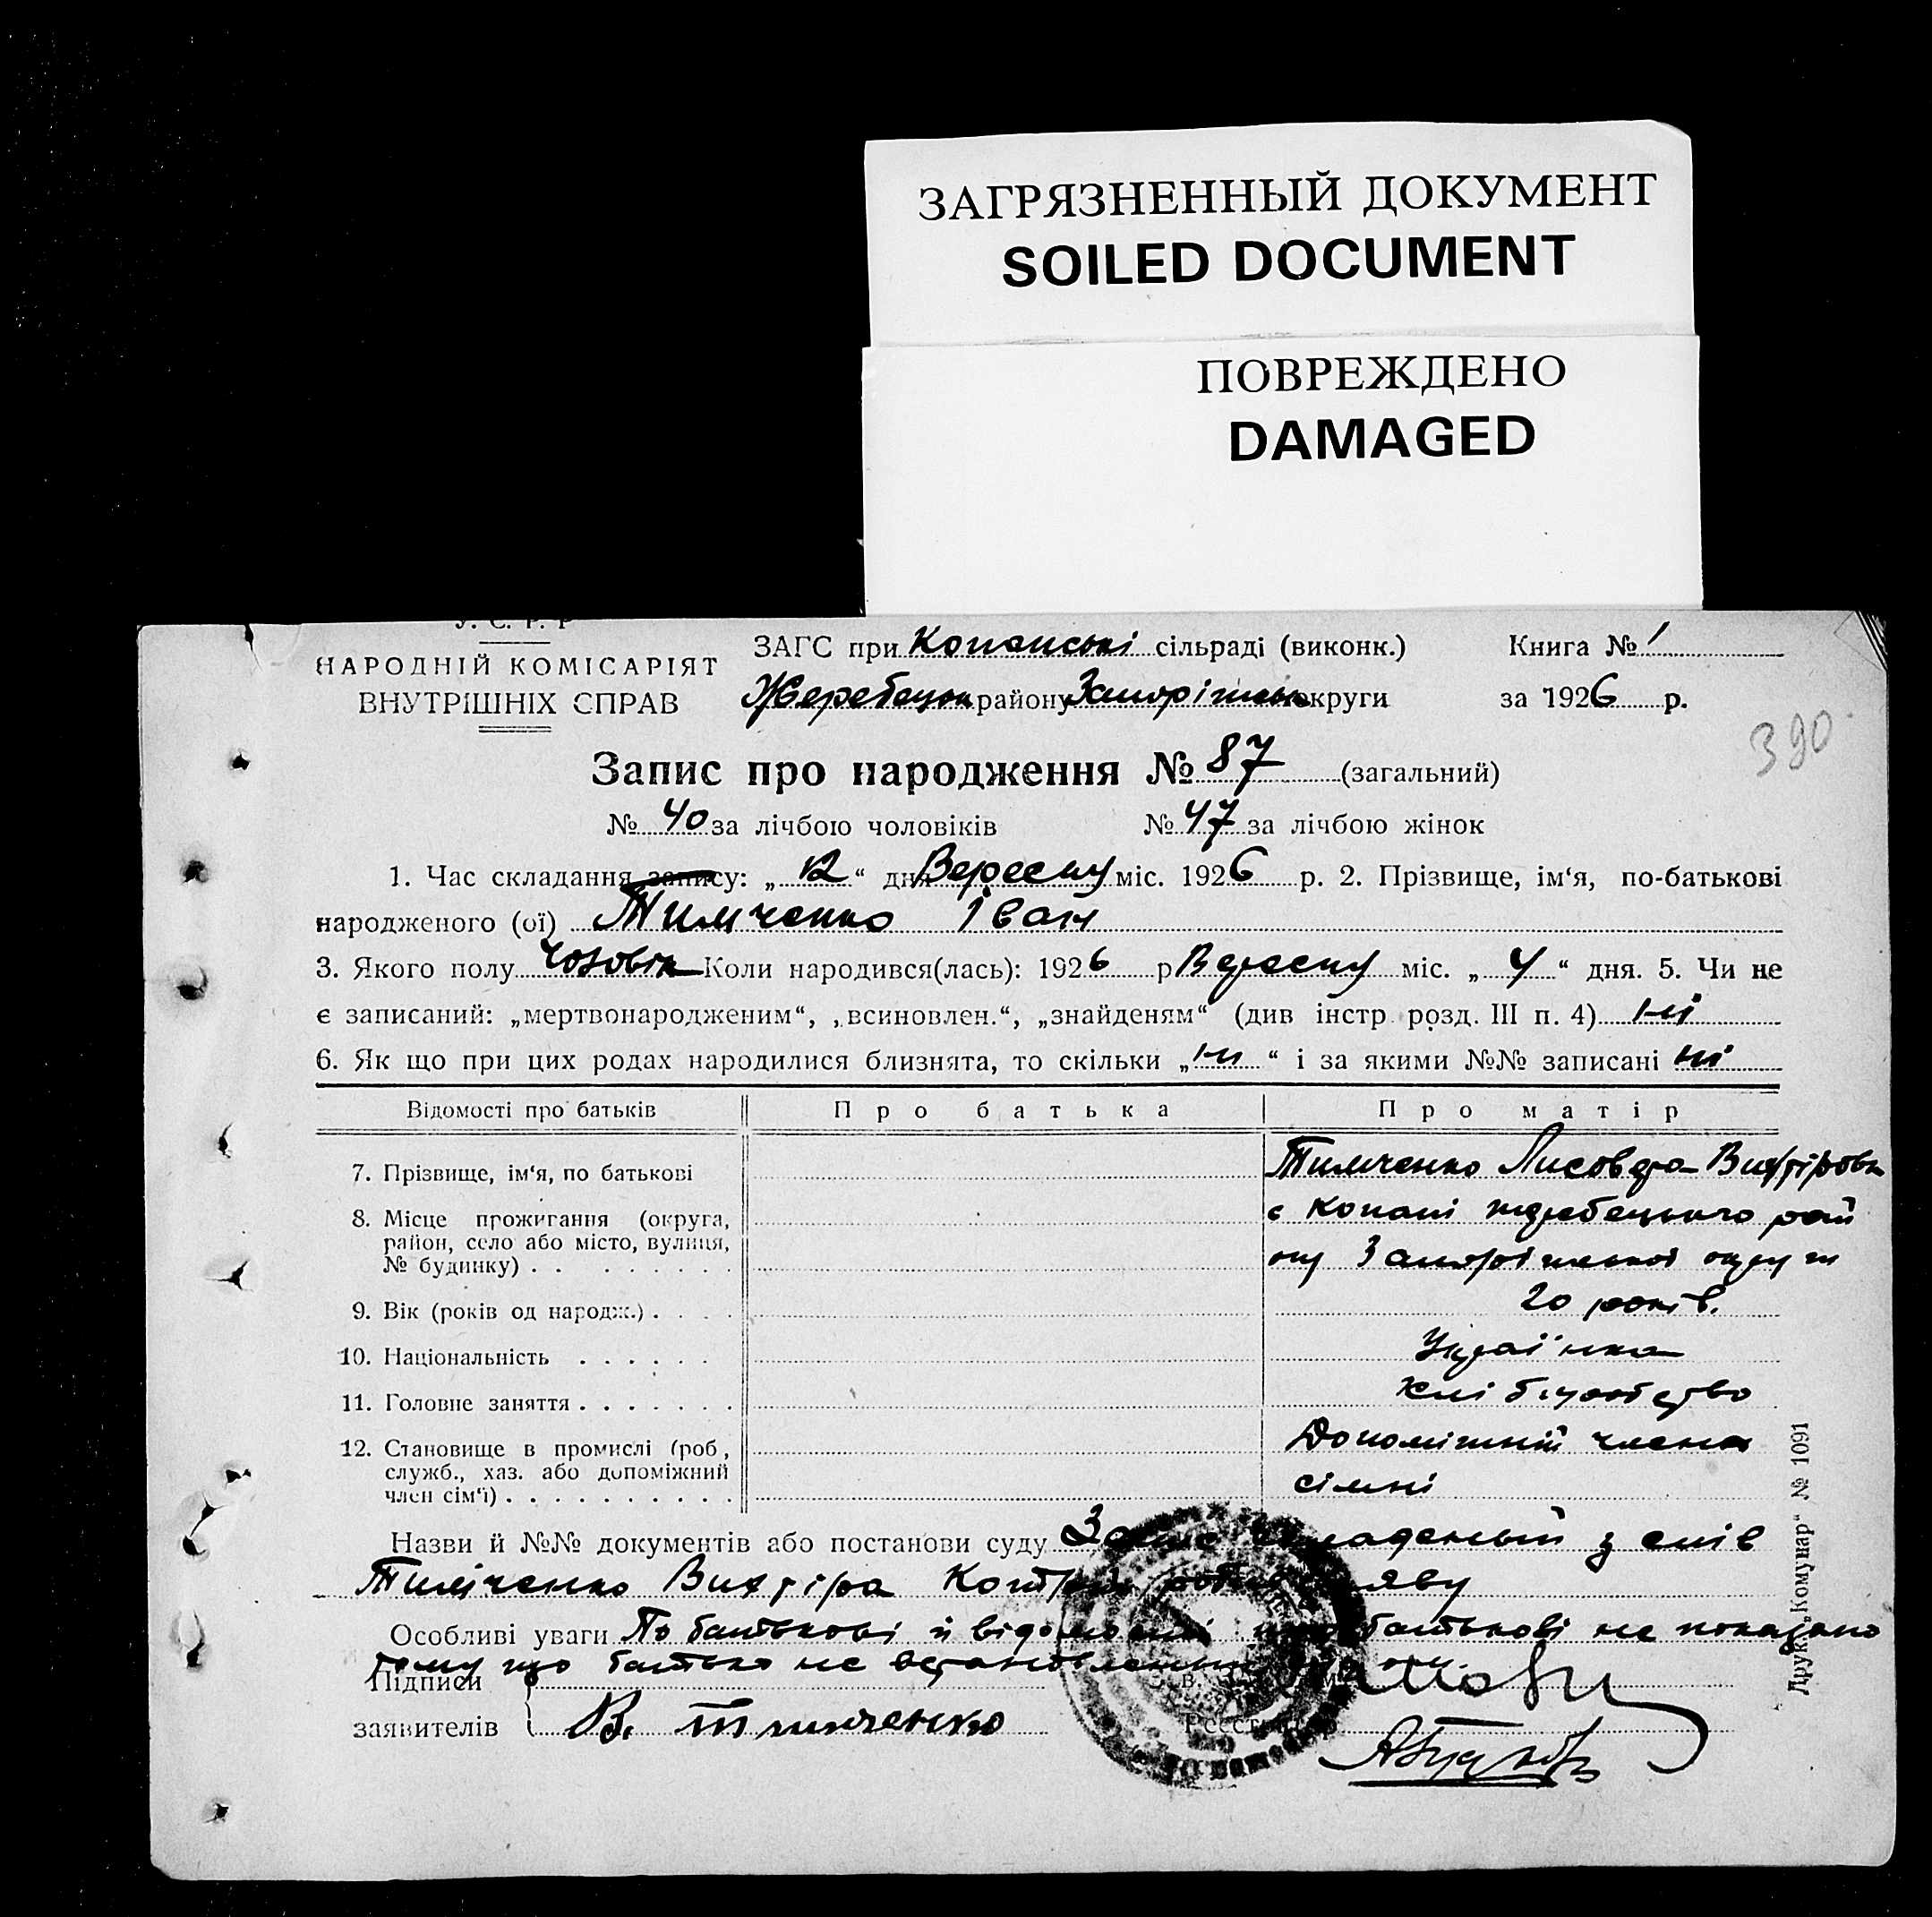 ЗАГРЯЗНЕННЫЙ ДОКУМЕНТ
SOILED DOCUMENT
ПОВРЕЖДЕНО
DAMAGED
У. С. Р. Р
НАРОДНІЙ КОМІСАРІЯТ
ВНУТРІШНІХ СПРАВ
ЗАГС при Копанські сільраді (виконк.)
Жеребецьк району Запоріжськ округи
Книга № 1
за 1926 р.
390
Запис про народження № 87 (загальний)
№ 40 за лічбою чоловіків № 47 за лічбою жінок
1. Час складання запису: „12“ дня Вересну міс. 1926 р. 2. Прізвище, ім‘я, по-батькові
народженого (ої) Тимченко Іван
3. Якого полу Чоловік Коли народився(лась): 1926 р Вересну міс. „4“ дня. 5. Чи не
є записаний: „мертвонародженим“, „всиновлен.“, „знайденям“ (див інстр розд. III п. 4) ні
6. Як що при цих родах народилися близнята, то скільки „ні“ і за якими №№ записані ні
Відомості про батьків Про батька Про матір
7. Прізвище, ім‘я, по батькові Тимченко
8. Місце прожигання (округа, с Копані жеребецького рай
район, село або місто, вулиця,
№ будинку) . . ону Запоріжської округи
9. Вік (років од народж.) . . . . 20 років.
10. Національність . . . . . . Українка
11. Головне заняття . . . . . . . хліборобство
12. Становище в промислі (роб, Допоміжний члена
служб., хаз. або допоміжний
член сім‘ї) . . . . . . . . . . сімні
Назви й №№ документів або постанови суду Запис складеный з слів
Тимченко заяву
Особливі уваги По батькові й відомості про батькові не показано
тому що батько не встановленный
Підписи
заявителів В. Тимченко
Реєстратор
Друк. „Комунар“ № 1091